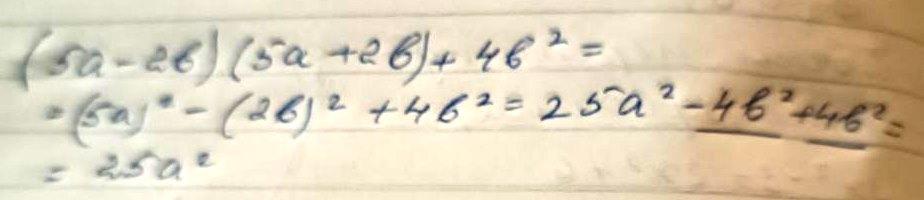 (5a-2b)(5a+2b)+4b²=
=(5a)²-(2b)²+4b²=25a²-4b²+4b²=
=25a²